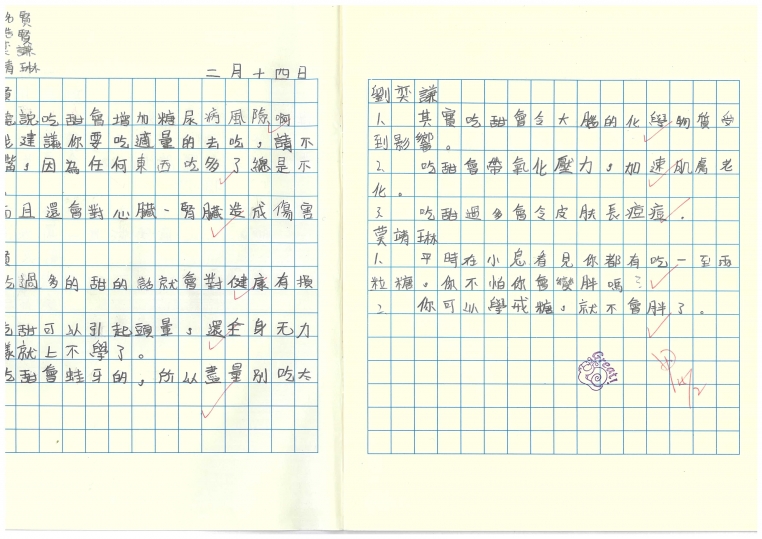 賢
賢
謙
靖琳
二月十四日
說吃甜會增加糖尿病風險啊
建議你要吃適量的去吃，請不
，因為任何東西吃多了總是不
且還會對心臟、腎臟造成傷害
過多的甜的話就會對健康有損
吃甜可以引起頭暈，還全身无力
樣就上不學了。
吃甜會蛀牙的，所以盡量別吃太
劉奕謙
1. 其實吃甜會令大腦的化學物質受
到影響。
2. 吃甜會帶氧化壓力，加速肌膚老
化。
3. 吃甜過多會令皮肤長痘痘.
莫靖琳
1. 平時在小息看見你都有吃一至兩
粒糖，你不怕你會變胖嗎
2. 你可以學戒糖，就不會胖了。
Great!